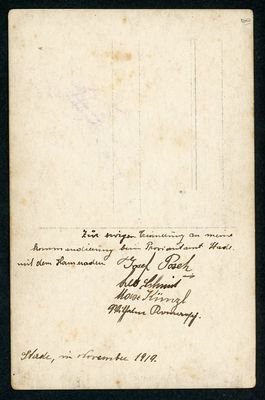 Zur ewigen Erinnerung an meine
Kommandierung beim Proviantamt Stade.
mit dem Kameraden Josef Posch
Leo Schmid
Alois Künzl
Wilhelm
Stade, im November 1919.